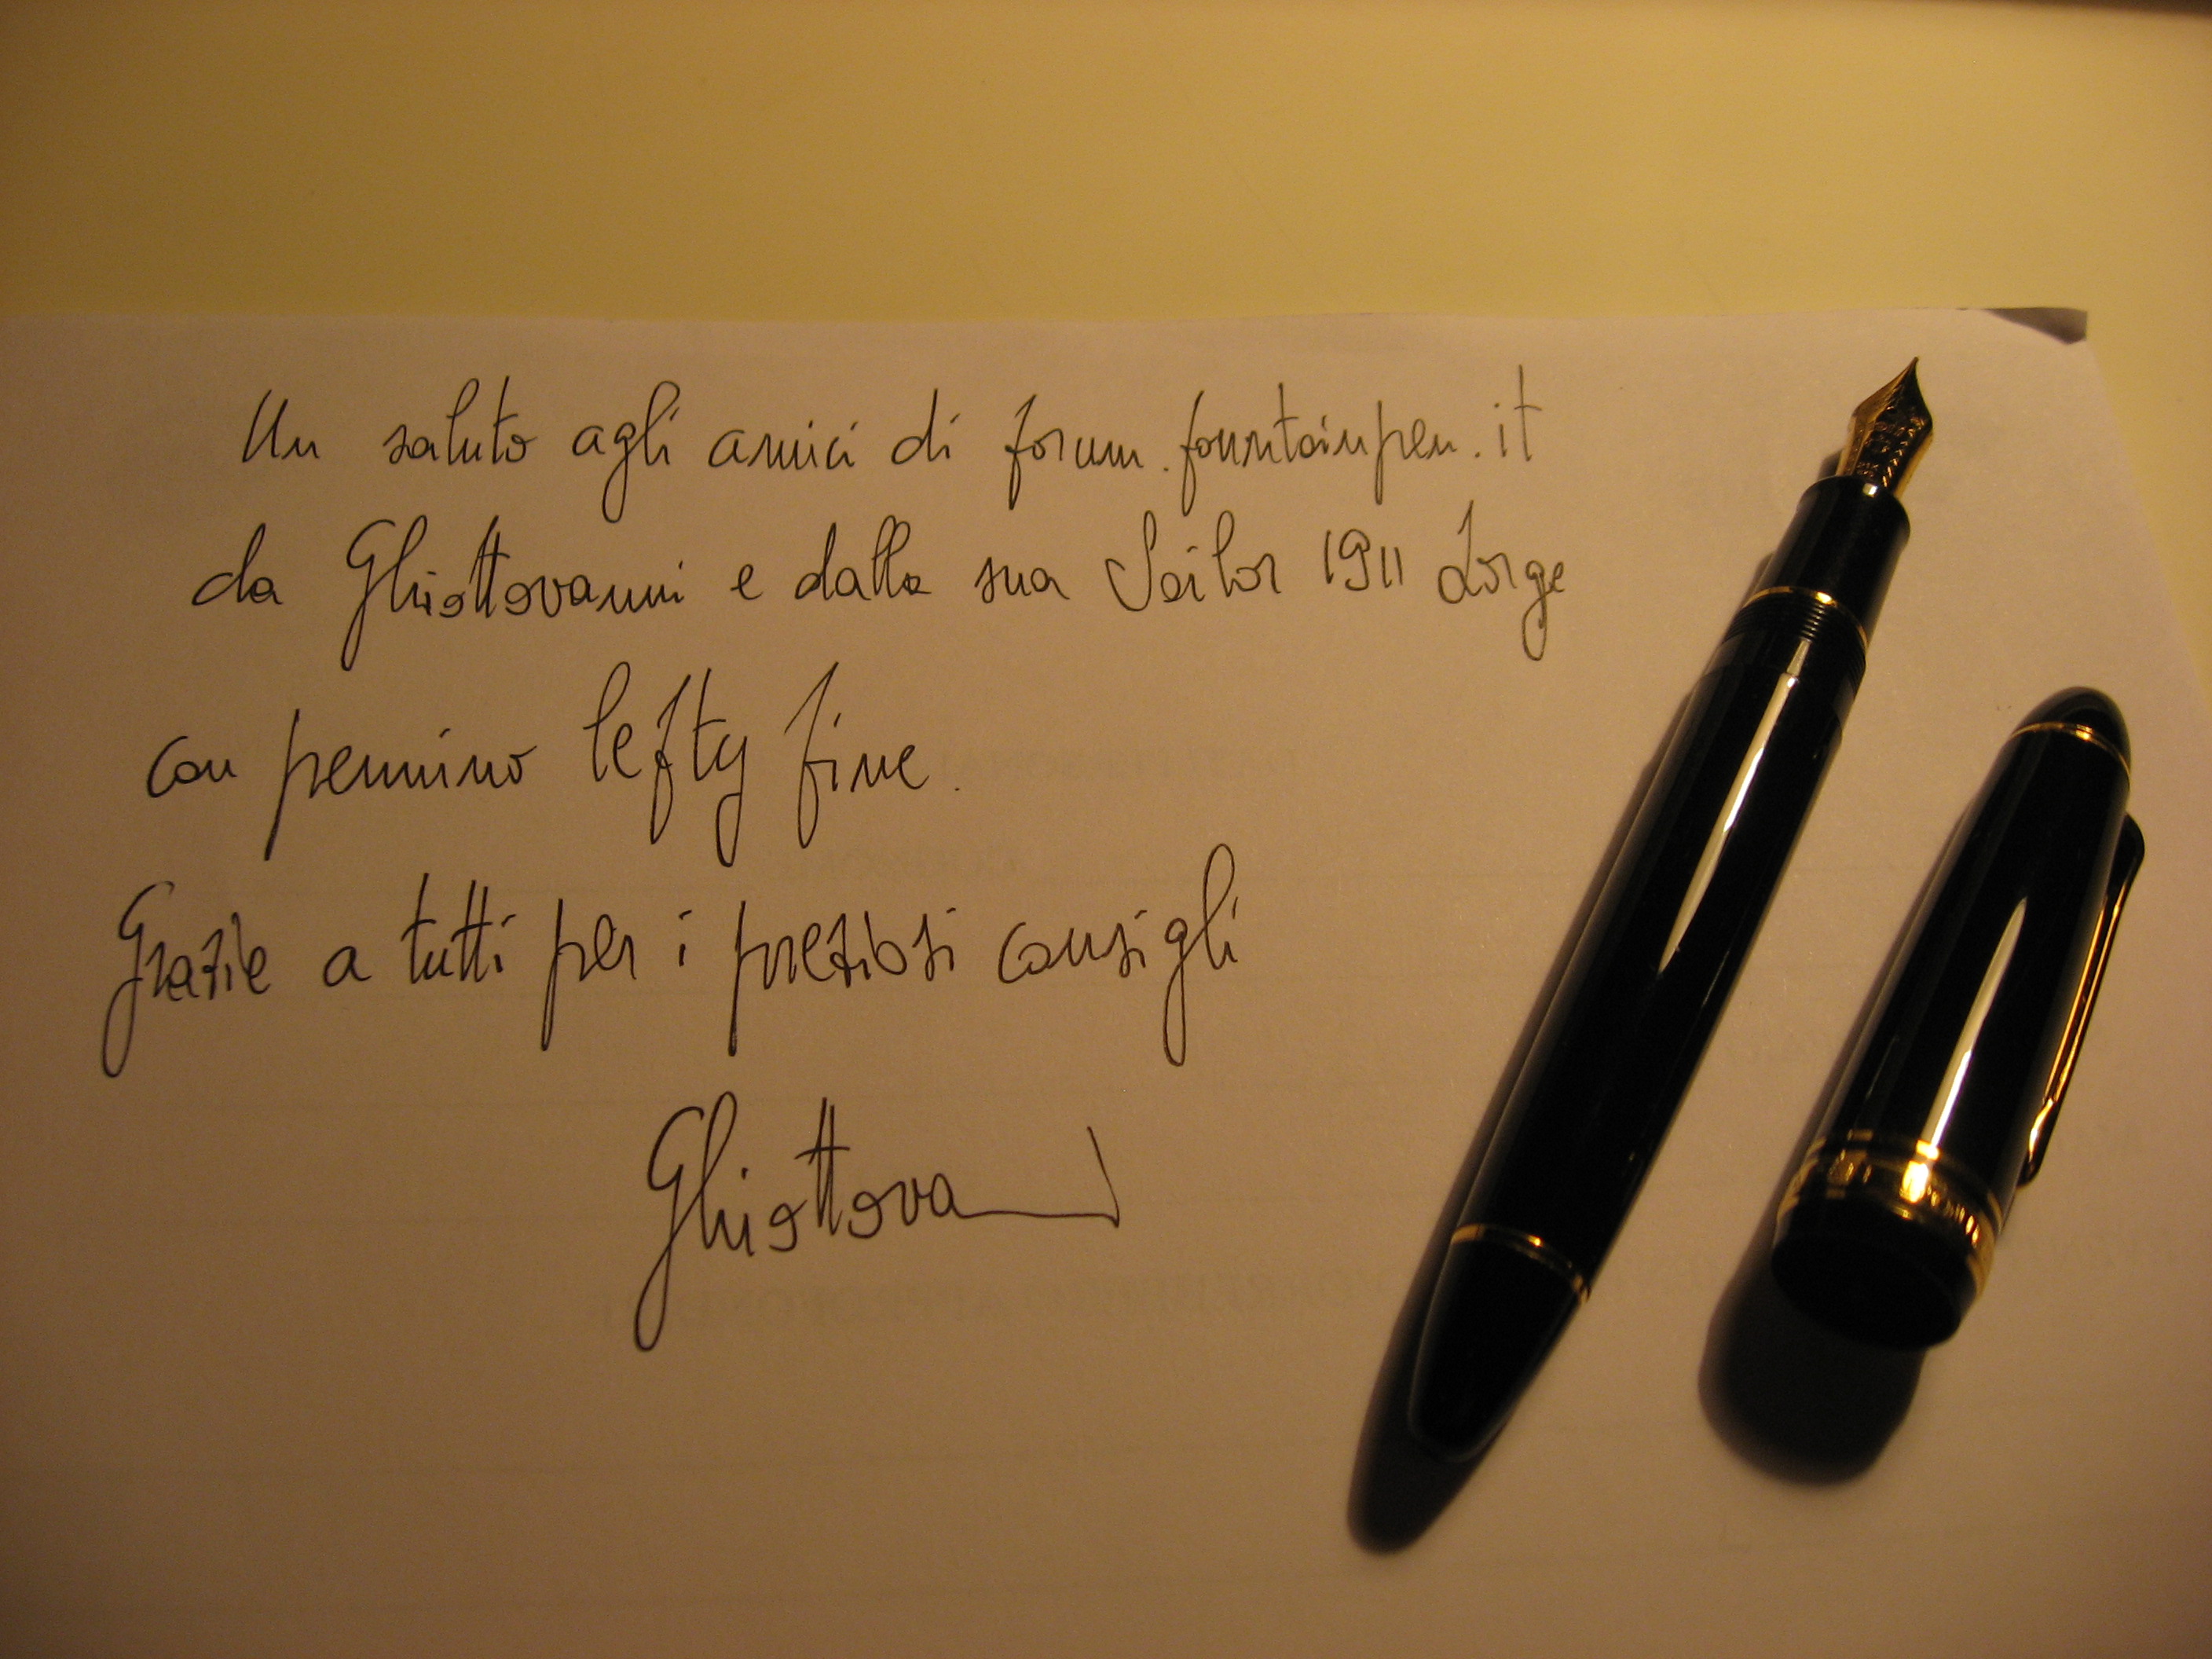 Un saluto agli amici di forum.fountainpen.it
da Ghiottovanni e dalla sua Sailor 1911 Large
con pennino lefty fine.
Grazie a tutti per i preziosi consigli
Ghiottova